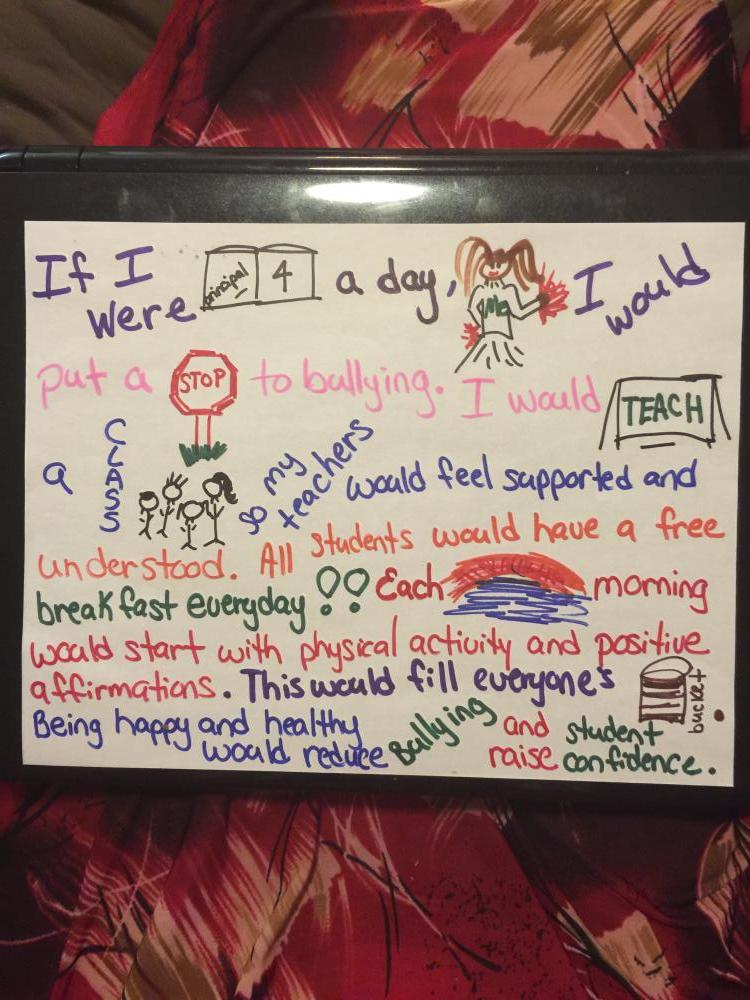 If I were principal 4 a day, Me I would
put a STOP to bullying. I would TEACH
a CLASS so my teachers would feel supported and
understood. All students would have a free
breakfast everyday!! Each morning
would start with physical activity and positive
affirmations. This would fill everyone's bucket.
Being happy and healthy
would reduce Bullying and raise student confidence.